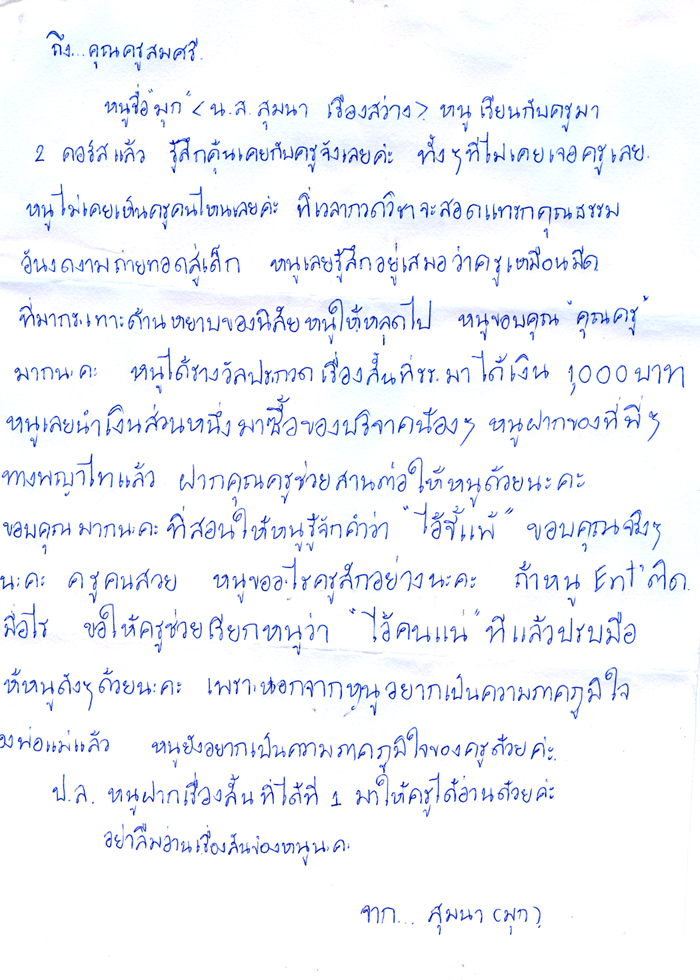 ถึง... คุณครูสมศรี.
หนูชื่อ"มุก"<น.ส. สุมนา เรืองสว่าง> หนูเรียนกับครูมา
2 คอร์สแล้ว รู้สึกคุ้นเคยกับครูจังเลยค่ะ ทั้งๆที่ไม่เคยเจอครูเลย.
หนูไม่เคยเห็นครูคนไหนเลยค่ะ ที่เวลากวดวิชาจะสอดแทรกคุณธรรม
อันงดงามถ่ายทอดสู่เด็ก หนูเลยรู้สึกอยู่เสมอว่าครูเหมือนมีด
ที่มากระเทาะด้านหยาบของนิสัยหนูให้หลุดไป หนูขอบคุณ "คุณครู"
มากนะคะ หนูได้รางวัลประกวดเรื่องสั้นที่รร. มาได้เงิน 1,000 บาท
หนูเลยนำเงินส่วนหนึ่งมาซื้อของบริจาคน้องๆ หนูฝากของที่พี่ๆ
ทางพญาไทแล้ว ฝากคุณครูช่วยสานต่อให้หนูด้วยนะคะ
ขอบคุณมากนะคะ ที่สอนให้หนูรู้จักคำว่า "ไอ้ขี้แพ้" ขอบคุณจริงๆ
นะคะ ครูคนสวย หนูขออะไรครูสักอย่างนะคะ ถ้าหนู Ent' ติด.
มื่อไร ขอให้ครูช่วยเรียกหนูว่า "ไอ้คนแน่" ทีแล้วปรบมือ
ห้หนูดังๆด้วยนะคะ เพราะนอกจากหนูอยากเป็นความภาคภูมิใจ
องพ่อแม่แล้ว หนูยังอยากเป็นความภาคภูมิใจของครูด้วยค่ะ.
ป.ล. หนูฝากเรื่องสั้นที่ได้ที่ 1 มาให้ครูได้อ่านด้วยค่ะ
อย่าลืมอ่านเรื่องสั้นของหนูนะคะ
จาก... สุมนา (มุก).